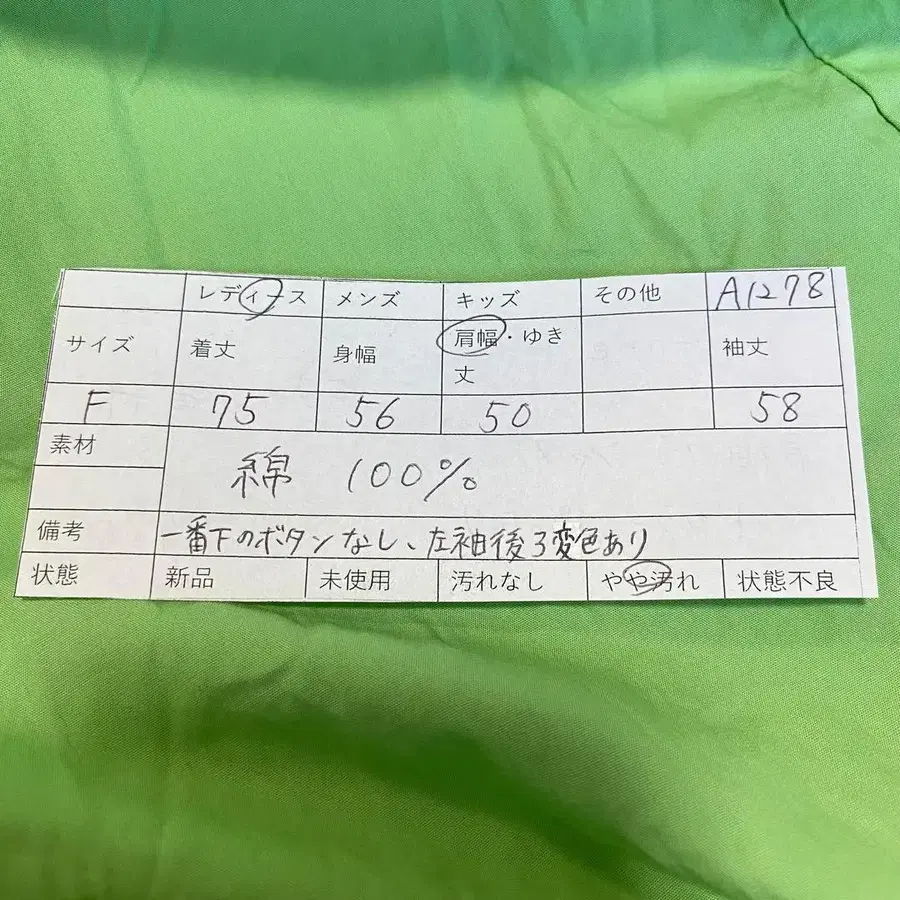 レディース メンズ キッズ その他 A1278
サイズ 着丈 身幅 肩幅・ゆき丈 袖丈
F 75 56 50 58
素材 綿 100%
備考 一番下のボタンなし、左袖後ろ変色あり
状態 新品 未使用 汚れなし やや汚れ 状態不良